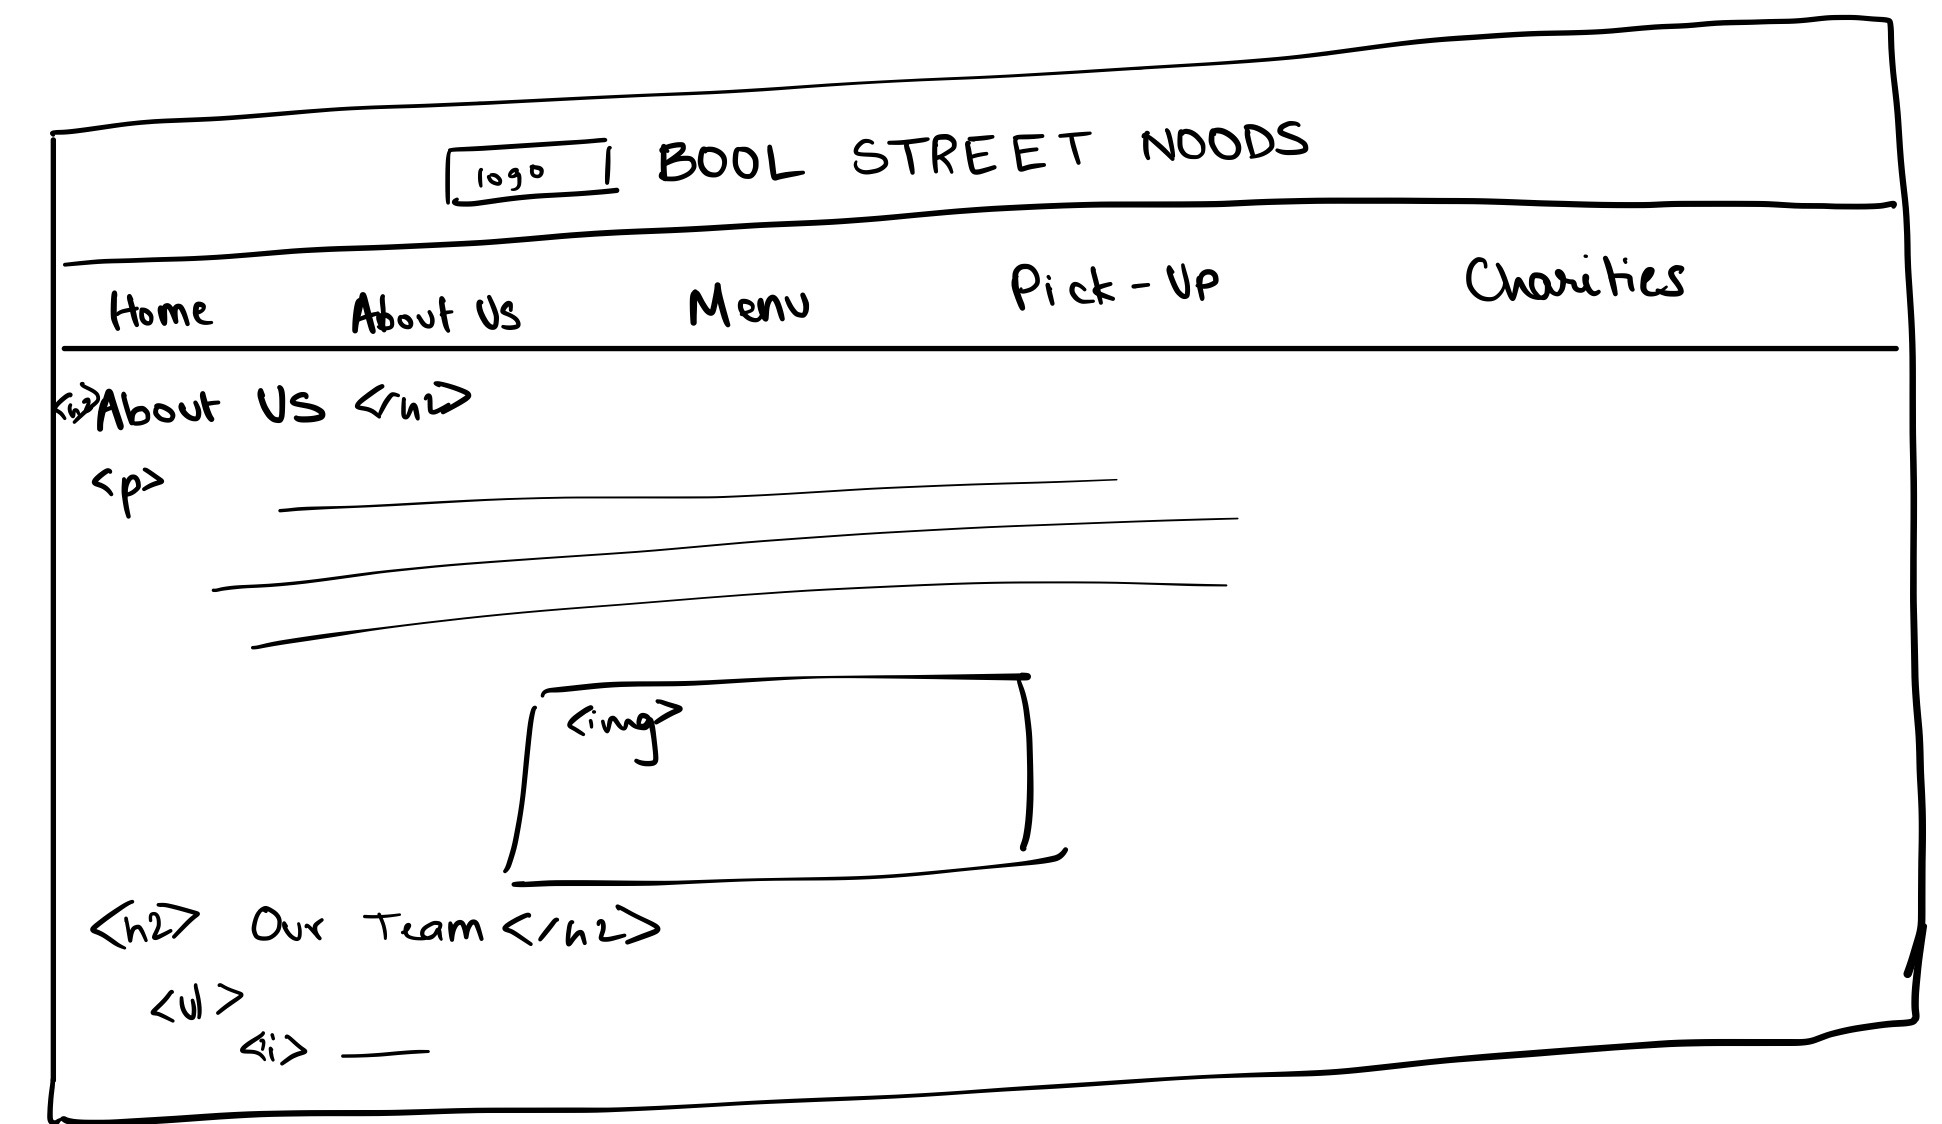 logo BOOL STREET NOODS
Home About Us Menu Pick-Up Charities
<h2>About Us </h2>
<p>
<img>
<h2> Our Team </h2>
<ul>
<i>